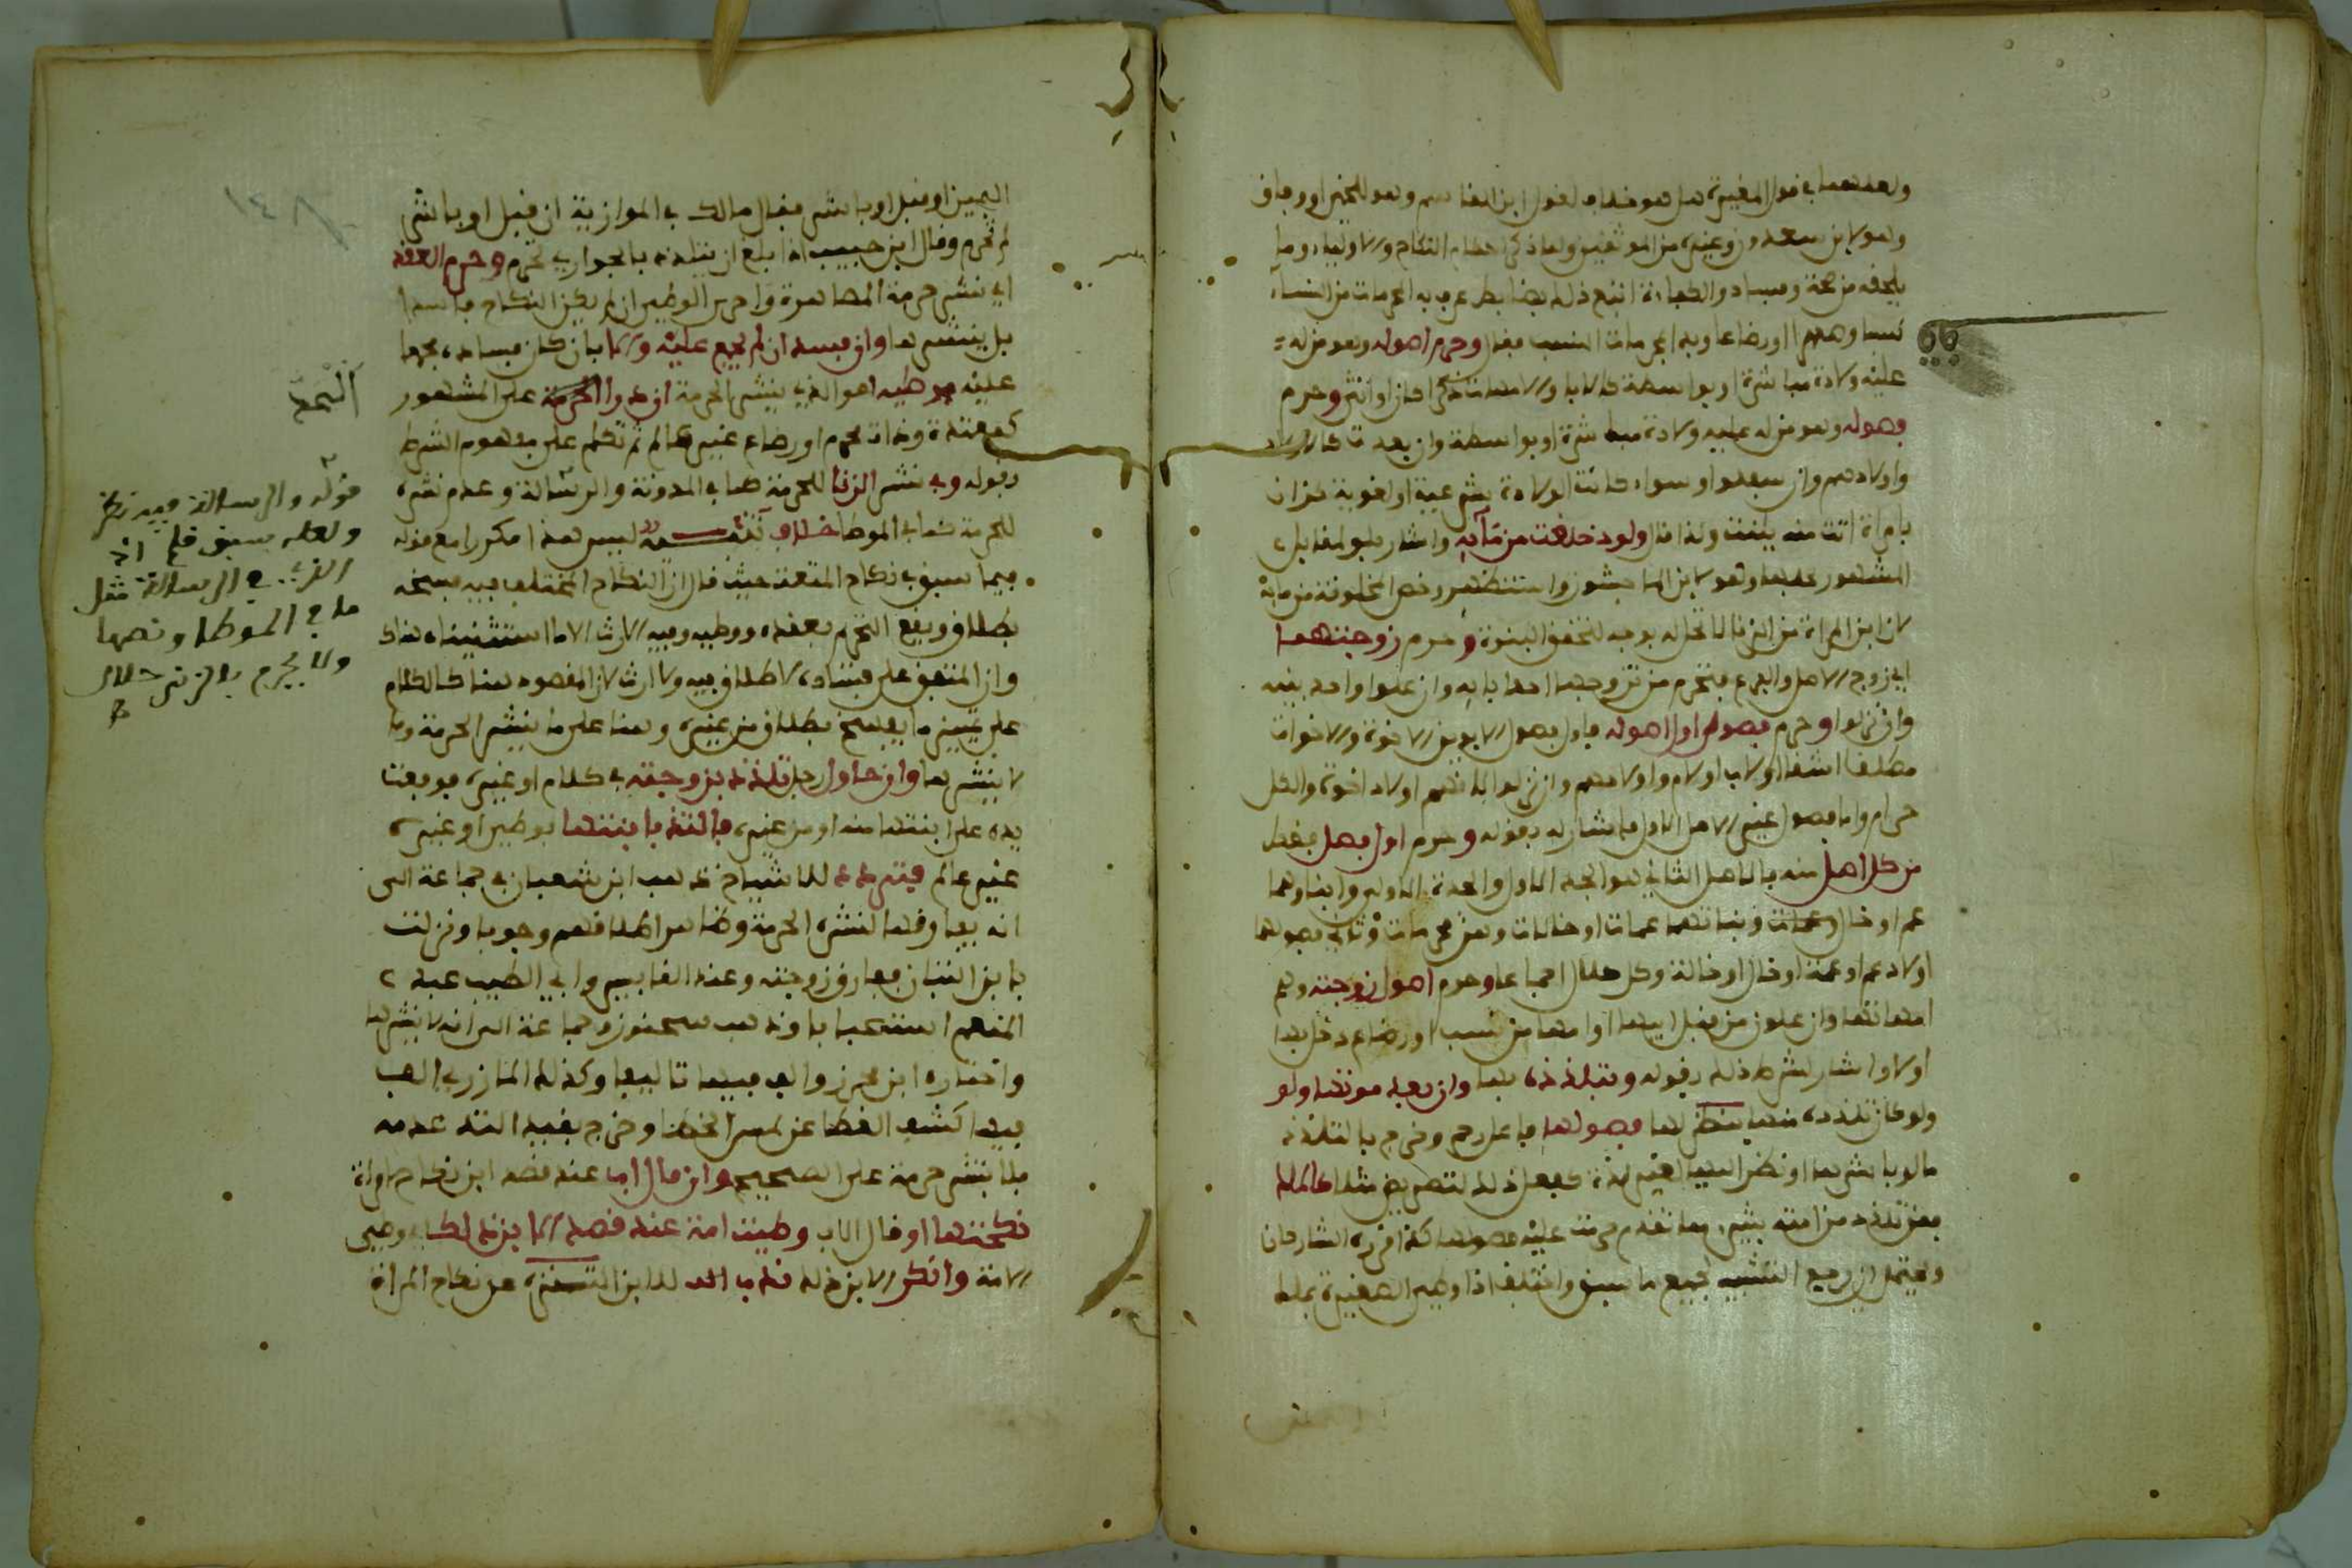 ولعدمهما في قول المغيرة هل هو خلاف لقول ابن القاسم وهو للخمي او وفاق
وهو لابن سعدون وغيره من الموثقين ولما ذكر احكام النكاح والاولياء وما
يلحقه من صحة وفساد والكفاءة اتبع ذلك بضابط عرف به المحرمات من النساء
نسبا وصهرا او رضاعا وبدا بمحرمات النسب فقال وحرم اصوله وهو من له
عليه ولادة مباشرة او بواسطة كالابا والامهات ذكرا كان او انثى وحرم
فصوله وهو من له عليه ولادة مباشرة او بواسطة وان بعدت كالاولاد
واولادهم وان سفلوا وسواء كانت الولادة شرعية او لغوية كزان
بامراة اتت منه ببنت ولذا قال ولو خلقت من مآئه واشار بلو لمقابل
المشهور عندها وهو لابن الماجشون واستظهر وخص المخلوقة من مائه
لان ابن المراة من الزنا لا تحل له بوجه لتحقق البنوة وحرم زوجتهما
اي زوج الاصل والفرع فتحرم من تزوجها احد ابايه وان علوا واحد بنيه
وان نزلوا وحرم فصول اول اصوله فاول فصول الابوين الاخوة والاخوات
مطلقا اشقا او لاب او لام واولادهم وان نزلوا لانهم اولاد اخوة والكل
حرام واما فصول غير الاصل الاول فاشار له بقوله وحرم اول فصل فقط
من كل اصل منه فالاصل الثاني هو الجد الاول والجدة الاولى وابناوهما
عم او خال وبناتهما عمات او خالات وهن محرمات وثاني فصولهما
اولاد عم او عمة او خال او خالة وكل حلال اجماعا وحرم اصول زوجته وهم
امهاتها وان علون من قبل ابيها او امها من نسب او رضاع دخل بها
او لا واشار لشرط ذلك بقوله وبتلذذه بها وان بعد موتها ولو
ولو كان تلذذه منها بنظر لها فصولها فاعل حرم وخرج بالتلذذ
ما لو باشرها او نظر اليها لغير لذة كفعل ذلك لتمريض مثلا كالملك
فمن تلذذ من امته بشيء مما تقدم حرمت عليه فصولها كذا قرره الشارحان
ويحتمل ان يرجع التشبيه لجميع ما سبق واختلف اذا وطي الصغيرة بملك
اليمين او قبل او باشر فقال مالك في الموازية ان قبل او باشر
لم تحرم وقال ابن حبيب اذا بلغ ان يتلذذ بالجواري تحرم وحرم العقد
اي نشر حرمة المصاهرة واحرى الوطي ان لم يكن النكاح فاسدا
بل ينشرها وان فسد ان لم يجمع عليه والا بان كان فساده مجمعا
عليه فوطيه هو الذي ينشر الحرمة ان درا الحد على المشهور
كمعتدة وذات محرم او رضاع غير عالم ثم تكلم على مفهوم الشرط
بقوله وفي نشر الزنا للحرمة كما في المدونة والرسالة وعدم نشره
للحرمة كما في الموطا خلاف تنبيه ليس هذا مكررا مع قوله
فيما سبق في نكاح المتعة حيث قال ان النكاح المختلف فيه فسخه
بطلاق ويقع التحريم بعقده ووطيه وفيه الارث الا ما استثنيناه هناك
وان المتفق على فساده لا طلاق فيه ولا ارث لان المقصود هناك الكلام
على تمييز ما يفسخ بطلاق من غيره وهنا على ما ينشر الحرمة وما
لا ينشرها وان حاول رجل تلذذه بزوجته في كلام او غيره فوقعت
يده على ابنتها منه او من غيره فالتذ بابنتها بوطي او غيره
غير عالم فتردد للاشياخ ذهب ابن شعبان في جماعة الى
انه يفارقها لنشره الحرمة وظاهر اطلاقهم وجوبا ونزلت
بابن التبان ففارق زوجته وعند القابسي وابي الطيب عبد
المنعم استحبابا وذهب سحنون وجماعة الى انه لا ينشرها
واختاره ابن محرز والف فيها تاليفا وكذلك المازري الف
فيها كشف الغطا عن لمس الخطا وخرج بقيد التذ عدمه
فلا ينشر حرمة على الصحيح وان قال اب عند قصد ابن نكاح امراة
نكحتها او قال الاب وطيت امة عند قصد الابن ذلك اي وطي
الامة وانكر الابن ذلك ندب له للابن التنزه عن نكاح المراة
١٤٨
الحد
قوله والرسالة فيه نظر
ولعله سبق قلم اذ
الذي في الرسالة مثل
ما في الموطا ونصها
ولا يحرم بالزنى حلال